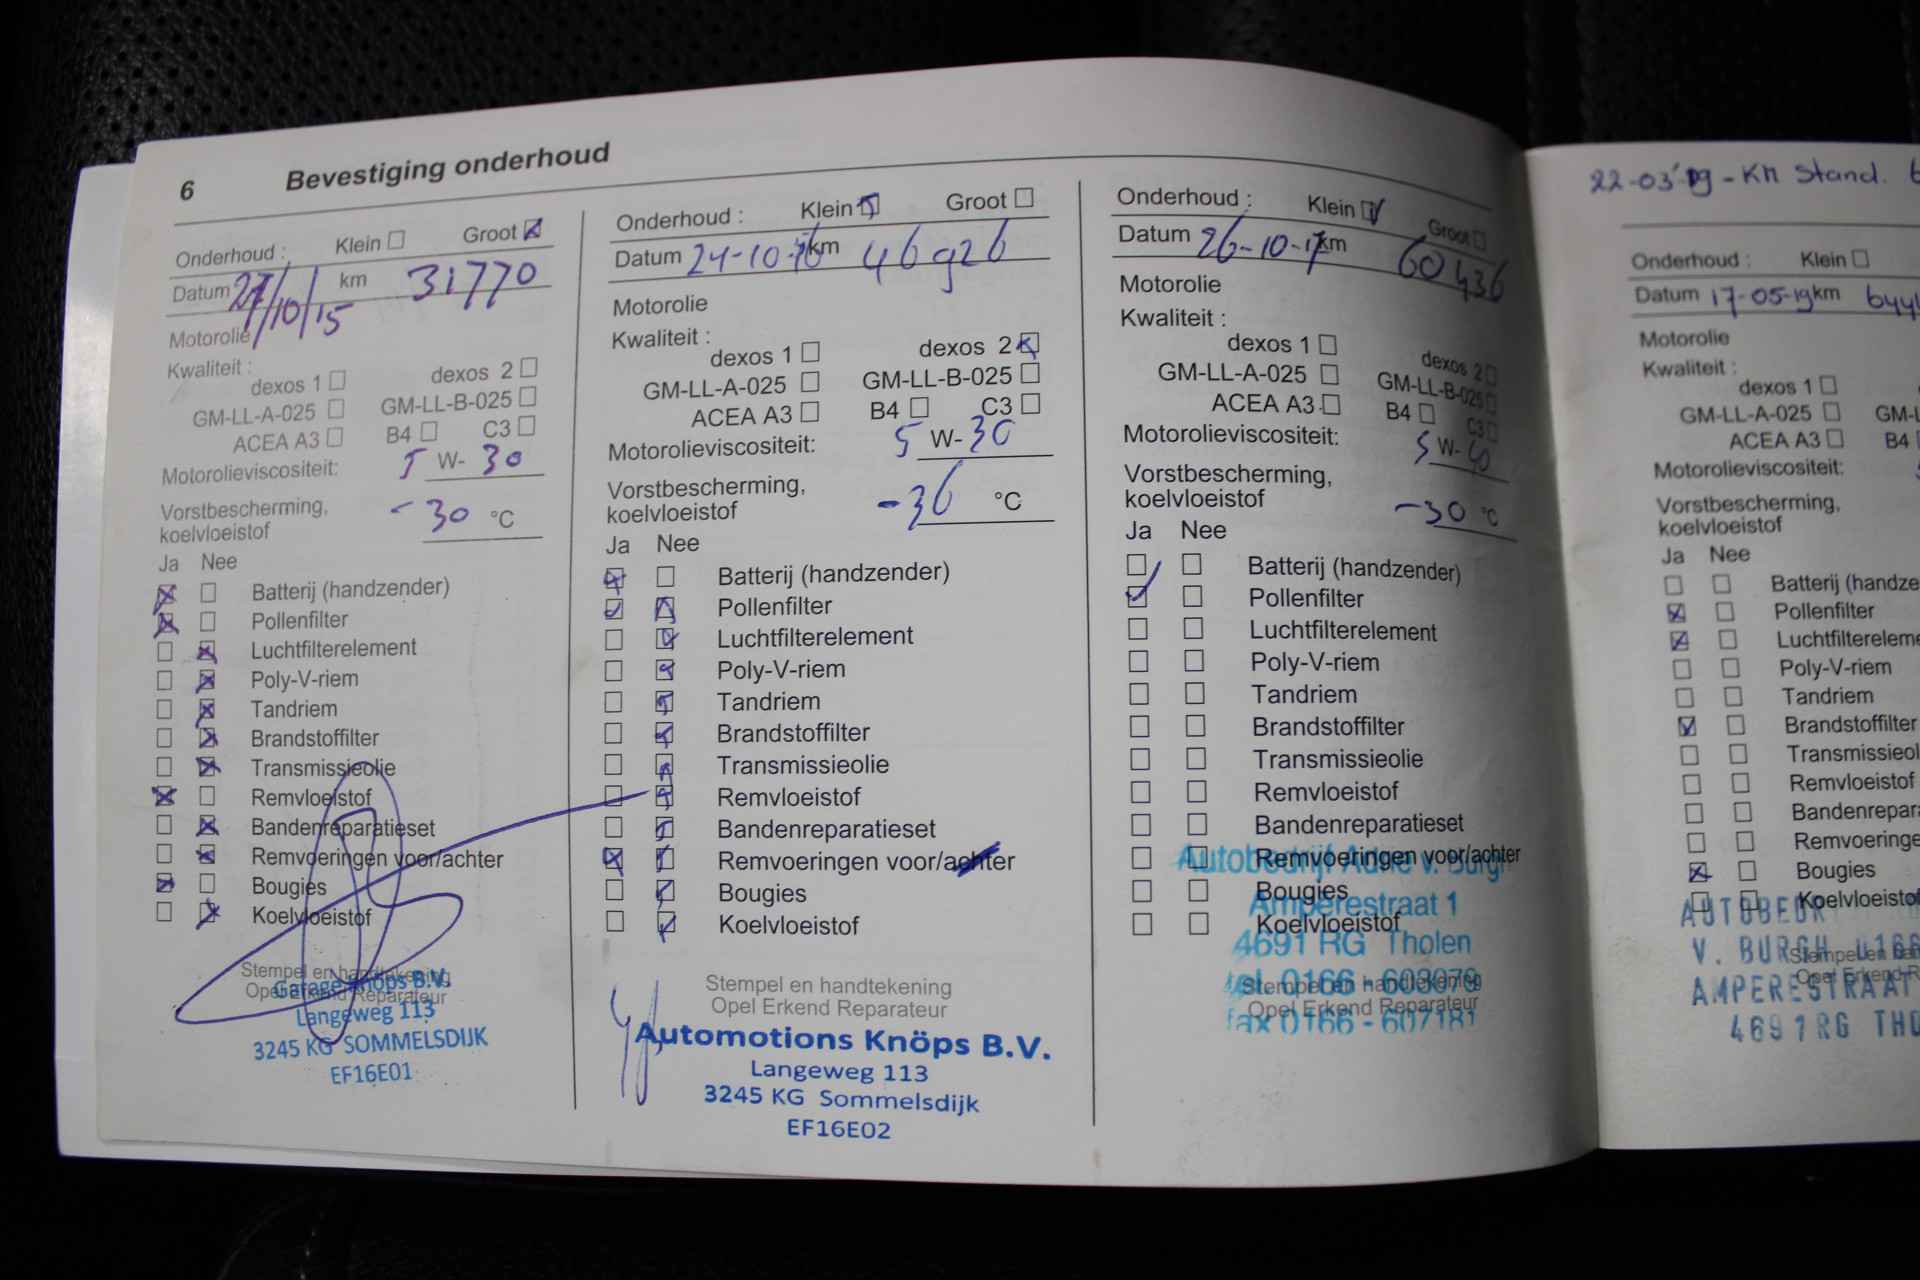 6 Bevestiging onderhoud
Onderhoud : Klein Groot
Datum 27/10/15 km 31770
Motorolie
Kwaliteit :
dexos 1 dexos 2
GM-LL-A-025 GM-LL-B-025
ACEA A3 B4 C3
Motorolieviscositeit: 5 W- 30
Vorstbescherming,
koelvloeistof -30 °C
Ja Nee
Batterij (handzender)
Pollenfilter
Luchtfilterelement
Poly-V-riem
Tandriem
Brandstoffilter
Transmissieolie
Remvloeistof
Bandenreparatieset
Remvoeringen voor/achter
Bougies
Koelvloeistof
Stempel en handtekening
Opel Erkend Reparateur
Garage Knöps B.V.
Langeweg 113
3245 KG SOMMELSDIJK
EF16E01
Onderhoud : Klein Groot
Datum 24-10-16 km 46926
Motorolie
Kwaliteit :
dexos 1 dexos 2
GM-LL-A-025 GM-LL-B-025
ACEA A3 B4 C3
Motorolieviscositeit: 5 W- 30
Vorstbescherming,
koelvloeistof -36 °C
Ja Nee
Batterij (handzender)
Pollenfilter
Luchtfilterelement
Poly-V-riem
Tandriem
Brandstoffilter
Transmissieolie
Remvloeistof
Bandenreparatieset
Remvoeringen voor/achter
Bougies
Koelvloeistof
Stempel en handtekening
Opel Erkend Reparateur
Automotions Knöps B.V.
Langeweg 113
3245 KG Sommelsdijk
EF16E02
Onderhoud : Klein Groot
Datum 26-10-17 km 60436
Motorolie
Kwaliteit :
dexos 1 dexos 2
GM-LL-A-025 GM-LL-B-025
ACEA A3 B4 C3
Motorolieviscositeit: 5 W- 40
Vorstbescherming,
koelvloeistof -30 °C
Ja Nee
Batterij (handzender)
Pollenfilter
Luchtfilterelement
Poly-V-riem
Tandriem
Brandstoffilter
Transmissieolie
Remvloeistof
Bandenreparatieset
Remvoeringen voor/achter
Autobedrijf Adrie v. Burgh
Bougies
Amperestraat 1
Koelvloeistof
4691 RG Tholen
tel. 0166 - 603079
Stempel en handtekening
Opel Erkend Reparateur
fax 0166 - 607181
22-03-19 - KM Stand. 6
Onderhoud : Klein
Datum 17-05-19 km 644
Motorolie
Kwaliteit :
dexos 1
GM-LL-A-025 GM-L
ACEA A3 B4
Motorolieviscositeit:
Vorstbescherming,
koelvloeistof
Ja Nee
Batterij (handze
Pollenfilter
Luchtfiltereleme
Poly-V-riem
Tandriem
Brandstoffilter
Transmissieol
Remvloeistof
Bandenrepara
Remvoeringe
Bougies
Koelvloeistof
AUTOBEDR
V. BURGH 0166
Stempel en han
Opel Erkend R
AMPERESTRAAT
4691 RG THO